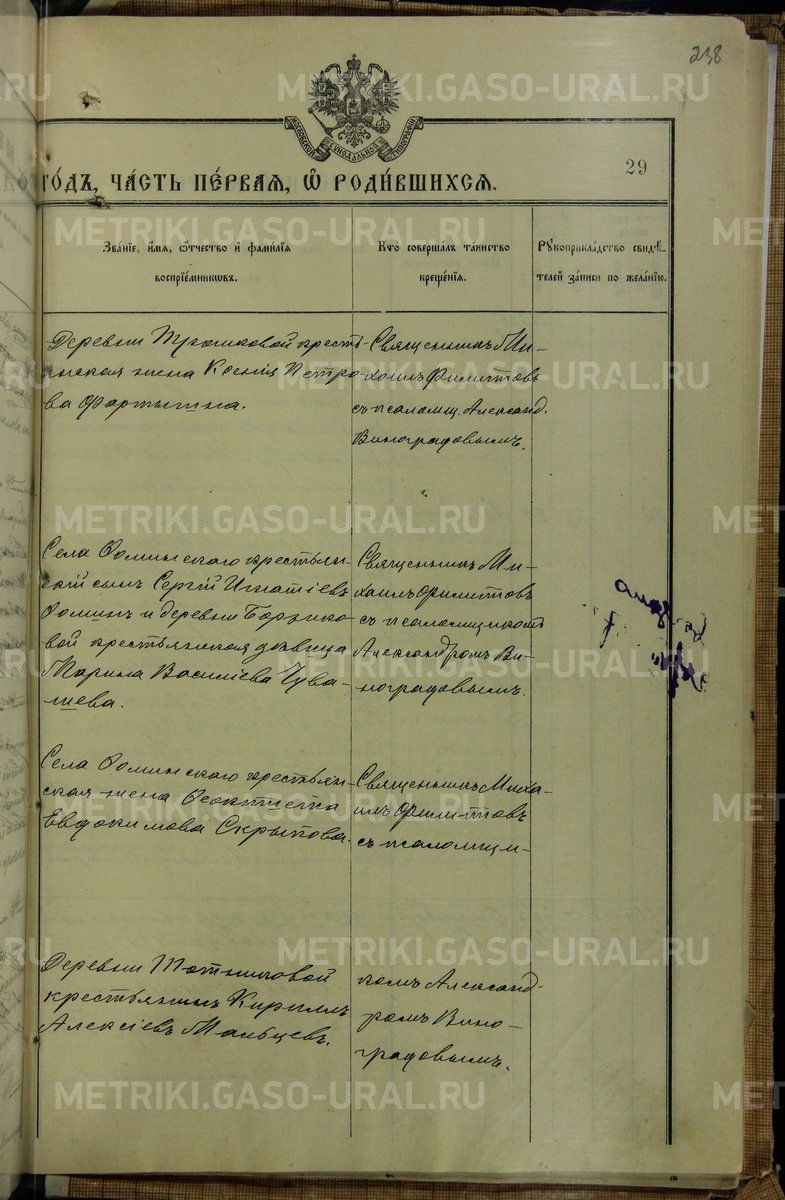 238
МОСКОВСКОЙ СѴНОДАЛЬНОЙ ТИПОГРАФІИ
29
ГО́ДЪ, ЧА́СТЬ ПЕ́РВАЯ, Ѽ РОДИ́ВШИХСЯ.
Зва́нїе, и́мя, ѻ҆́тчество и҆ фами́лїя
воспрїе́мниковъ.
Кто̀ соверша́лъ та́инство
креще́нїя.
Рꙋкоприкла́дство свидѣ́-
телей за́писи по жела́нїю.
Деревни Трошковой кресть-
янская жена Ксенія Петро-
ва Фартыгина.
Священникъ Ми-
хаилъ Филиттовъ
съ псаломщ. Александ.
Виноградовымъ.
Села Ѳоминскаго крестьян-
скій сынъ Сергій Игнатіевъ
Ѳоминъ и деревни
вой крестьянская дѣвица
Марина Василіева Чува-
шева.
Священникъ Ми-
хаилъ Филиттовъ
съ псаломщикомъ
Александромъ Ви-
ноградовымъ.
Села Ѳоминскаго крестьян-
ская жена Ѳеоктиста
Евдокимова Скрыпова.
Священникъ Миха-
илъ Филиттовъ
съ псаломщи-
Деревни
крестьянинъ Кириллъ
Алексіевъ Мальцевъ.
комъ Александ-
ромъ Вино-
градовымъ.
METRIKI.GASO-URAL.RU